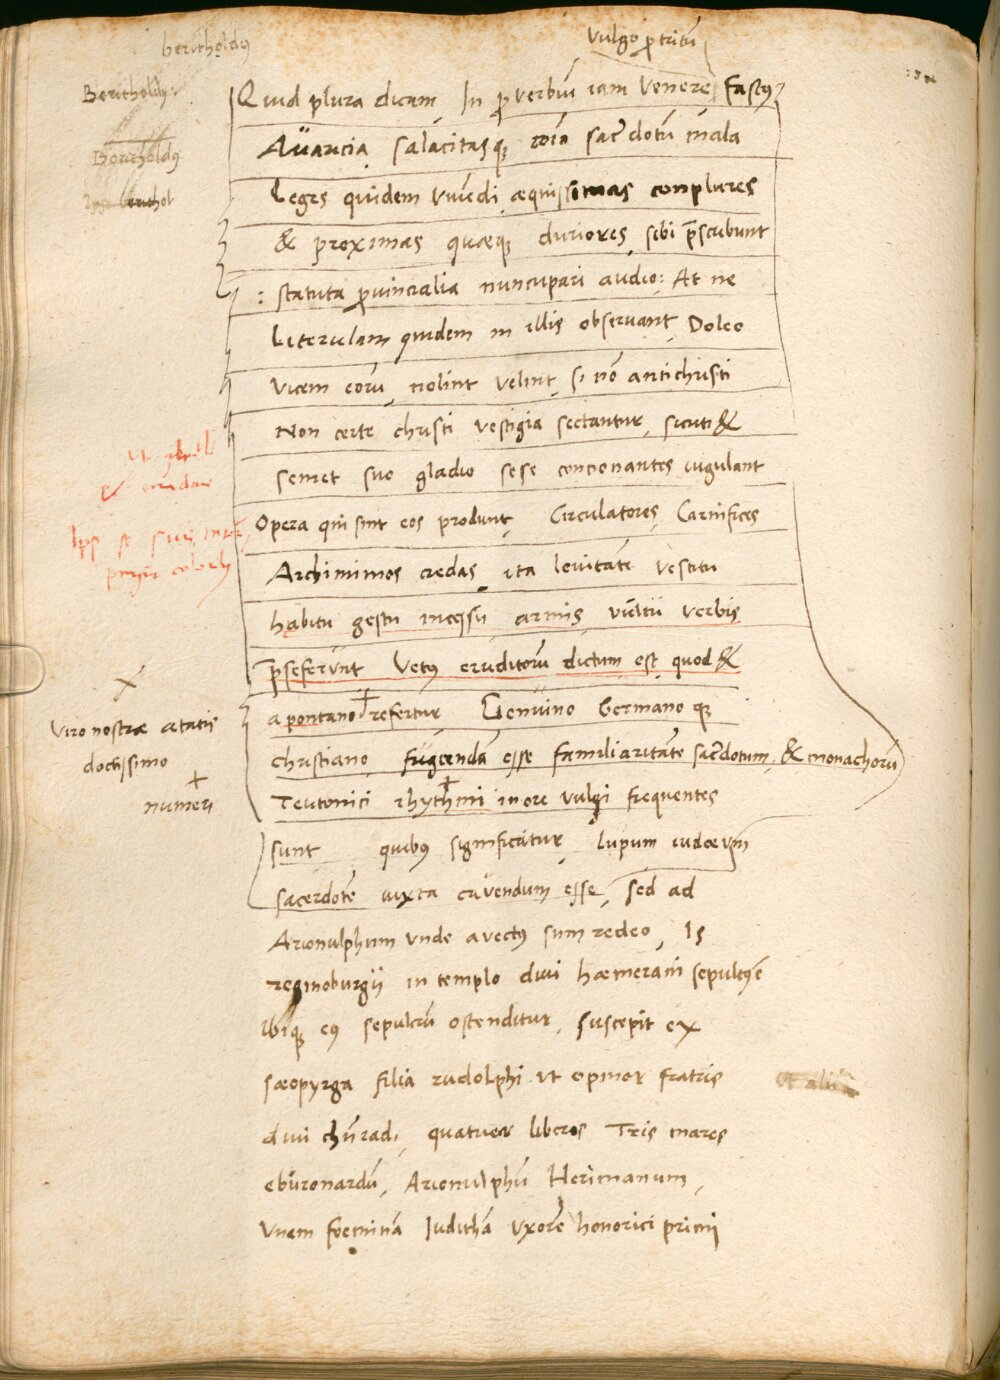 bertholdꝰ
Vulgo ꝓtritū
Bertholdꝰ
Bertholdꝰ
berthol
Quid plura dicam In ꝓverbiū iam venere Fastꝰ
Avaricia salacitasqꝫ sacꝰdotū mala
Leges quidem vivēdi æquissimas conplures
& proximas quæqꝫ duriores sibi p̄scribunt
: statuta ꝓvincialia nuncupari audio: At ne
Literulam quidem in illis observant Doleo
vicem eorū nolint velint, si nō antichristi
Non certe christi vestigia sectantur, sicuti &
semet suo gladio sese concionantes iugulant
Opera qui sint eos produnt, Circulatores, Carnifices
Archimimos credas, ita levitate vestitu
habitu gestu incessu armis, vultu verbis
p̄seferunt Vetꝰ eruditorū dictum est quod &
a pontano refertur Genuino Germano qꝫ
Viro nostræ ætatis
doctissimo
christiano fugiendā esse familiaritatē sacꝰdotum & monachorū
numeri
Teutonici rhythmi in ore vulgi frequentes
sunt quibꝰ significatur lupum iudæum
sacerdotē iuxta cavendum esse, sed ad
Arionulphum unde avectꝰ sum redeo, Is
reginoburgij in templo divi hæmerami sepultꝰ ē
ibiqꝫ eꝰ sepulcrū ostenditur, suscepit ex
sæopyrga filia rudolphi ut opinor fratris
divi chūradi, quatuor liberos Tris mares
eburonardū, Arionulphū Herimanum,
Unam foeminā Juditha uxorē honorici primi